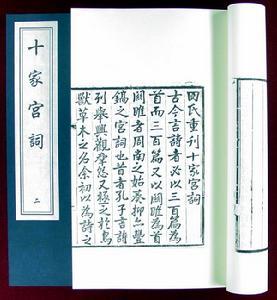 十家宫詞
二
田氏重刊十家宮詞
古今言詩者必以三百篇為
首而三百篇又以關雎為首
關雎者周南之始抑亦豐
鎬之宮詞也昔者孔子言詩
列舉興觀羣怨又極之於鳥
獸草木之名余初以為詩之